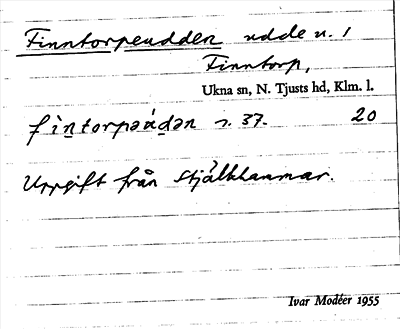 Finntorpeudden udde u. 1
Finntorp,
Ukna sn, N. Tjusts hd, Klm. l.
s. 37. 20
Uppgift från Stjälkhammar.
Ivar Modéer 1955